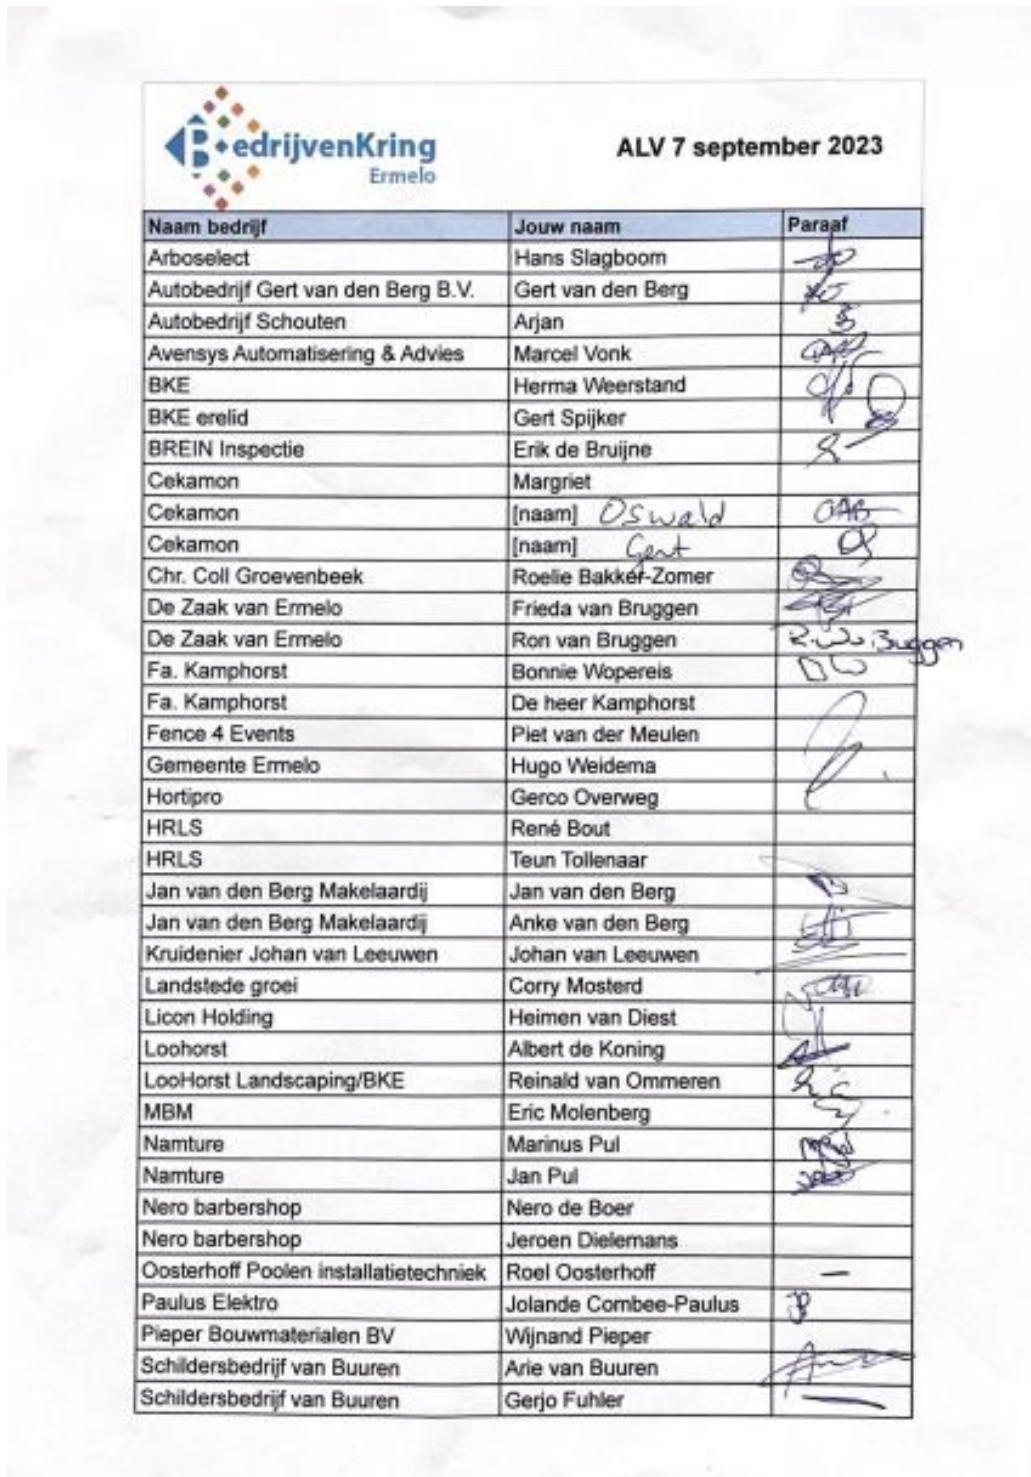 BedrijvenKring
Ermelo
ALV 7 september 2023
Naam bedrijf Jouw naam Paraaf
Arboselect Hans Slagboom
Autobedrijf Gert van den Berg B.V. Gert van den Berg
Autobedrijf Schouten Arjan
Avensys Automatisering & Advies Marcel Vonk
BKE Herma Weerstand
BKE erelid Gert Spijker
BREIN Inspectie Erik de Bruijne
Cekamon Margriet
Cekamon [naam] Oswald OAB
Cekamon [naam] Gert
Chr. Coll Groevenbeek Roelie Bakker-Zomer
De Zaak van Ermelo Frieda van Bruggen
De Zaak van Ermelo Ron van Bruggen
Fa. Kamphorst Bonnie Wopereis BW
Fa. Kamphorst De heer Kamphorst
Fence 4 Events Piet van der Meulen
Gemeente Ermelo Hugo Weidema
Hortipro Gerco Overweg
HRLS René Bout
HRLS Teun Tollenaar
Jan van den Berg Makelaardij Jan van den Berg
Jan van den Berg Makelaardij Anke van den Berg
Kruidenier Johan van Leeuwen Johan van Leeuwen
Landstede groei Corry Mosterd
Licon Holding Heimen van Diest
Loohorst Albert de Koning
LooHorst Landscaping/BKE Reinald van Ommeren
MBM Eric Molenberg
Namture Marinus Pul
Namture Jan Pul
Nero barbershop Nero de Boer
Nero barbershop Jeroen Dielemans
Oosterhoff Poolen installatietechniek Roel Oosterhoff —
Paulus Elektro Jolande Combee-Paulus JP
Pieper Bouwmaterialen BV Wijnand Pieper
Schildersbedrijf van Buuren Arie van Buuren
Schildersbedrijf van Buuren Gerjo Fuhler —